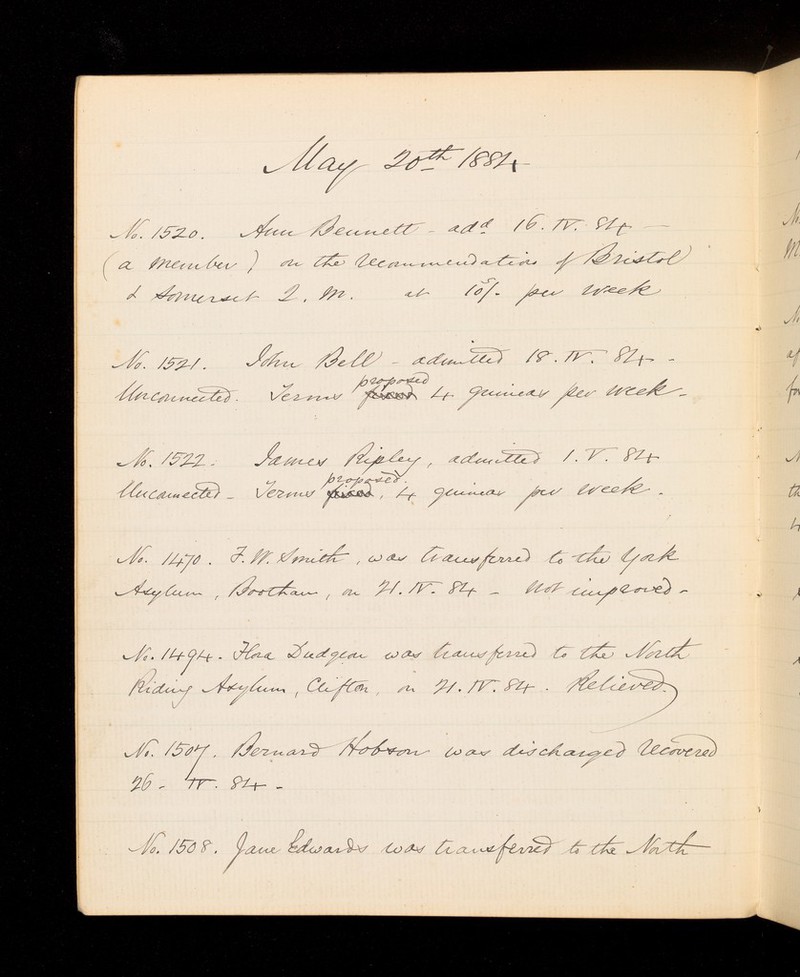 May 20th 1884
No. 1520. Ann Bennett - add 16.IV.84 —
(a member) on the recommendation of Bristol
& Somerset Q. M. at 10/- per week
No. 1521. John Bell - admitted 18.IV.84 -
proposed
Unconnected. Terms fixed 4 guineas per week -
No. 1522. James Ripley, admitted 1.V.84
proposed.
Unconnected - Terms fixed, 4 guineas per week.
No. 1470. F. W. Smith, was transferred to the York
Asylum, Bootham, on 21.IV.84 - Not improved -
No. 1494. Flora Dudgeon was transferred to the North
Riding Asylum, Clifton, on 21.IV.84. Relieved.
No. 1507. Bernard Hobson was discharged recovered
26 - IV. 84 -
No. 1508. Jane Edwards was transferred to the North